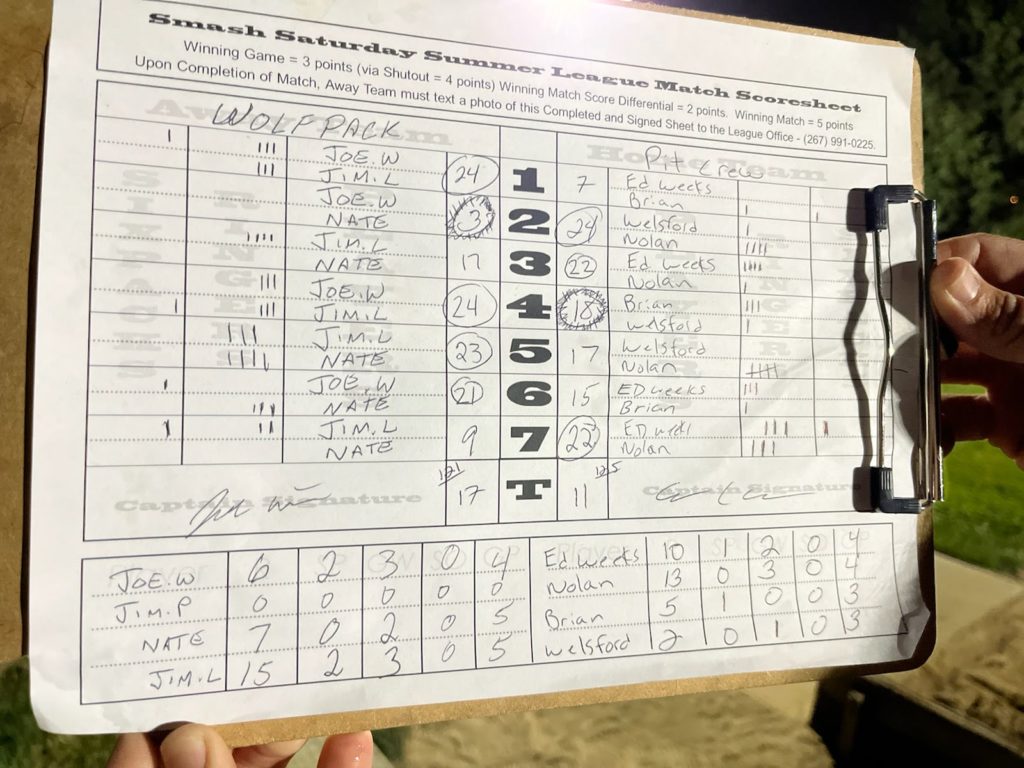 Smash Saturday Summer League Match Scoresheet
Winning Game = 3 points (via Shutout = 4 points) Winning Match Score Differential = 2 points. Winning Match = 5 points
Upon Completion of Match, Away Team must text a photo of this Completed and Signed Sheet to the League Office - (267) 991-0225.
Away Team WOLFPACK Home Team Pit Crew
JOE.W 24 1 7 Ed weeks
JIM.L Brian
JOE.W 3 2 24 Welsford
NATE Nolan
JIM.L 17 3 22 Ed weeks
NATE Nolan
JOE.W 24 4 18 Brian
JIM.L Welsford
JIM.L 23 5 17 Welsford
NATE Nolan
JOE.W 21 6 15 ED weeks
NATE Brian
JIM.L 9 7 22 ED weeks
NATE Nolan
121 125
Captain Signature 17 T 11 Captain Signature
JOE.W 6 2 3 0 4 Ed weeks 10 1 2 0 4
JIM.P 0 0 0 0 0 Nolan 13 0 3 0 4
NATE 7 0 2 0 5 Brian 5 1 0 0 3
JIM.L 15 2 3 0 5 Welsford 2 0 1 0 3